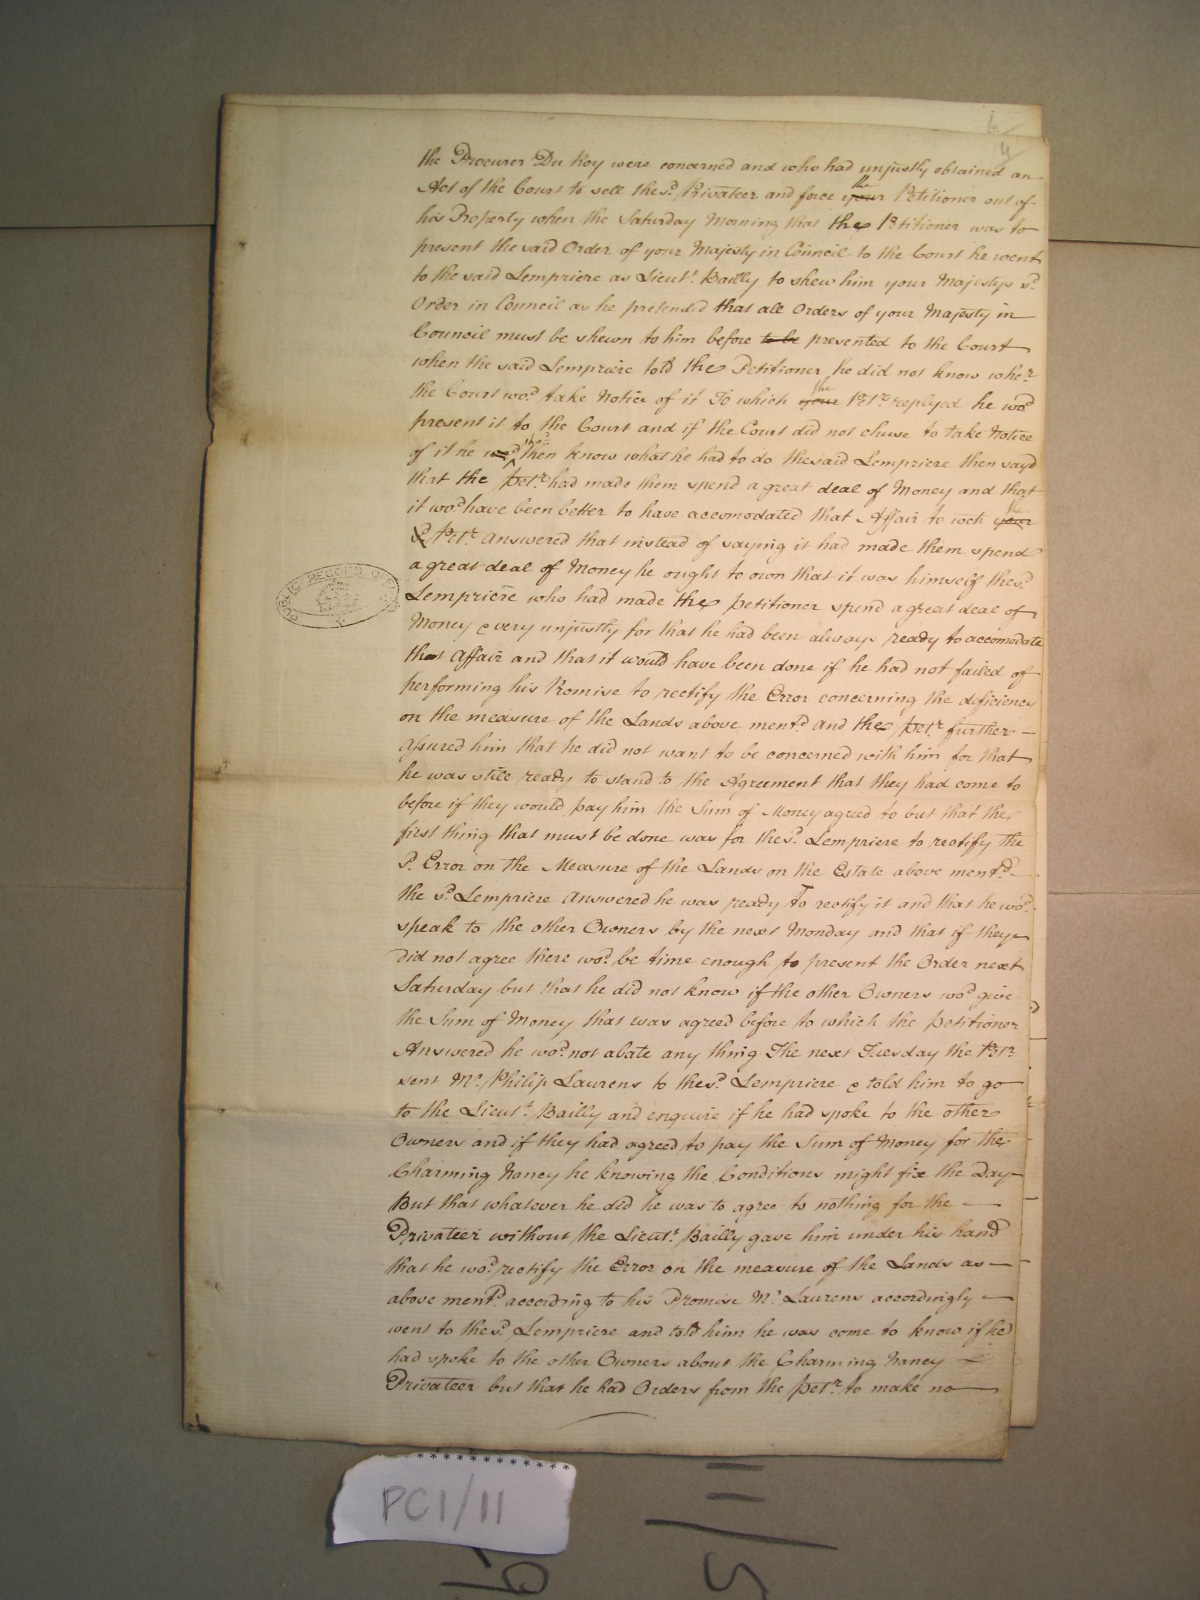 6
4
the Procurer Du Roy were concerned and who had unjustly obtained an
Act of the Court to sell the sd. Privateer and force your the Petitioner out of
his Property when the Saturday Morning that the Petitioner was to
present the said Order of your Majesty in Council to the Court he went
to the said Lempriere as Lieut. Bailly to shew him your Majestys sd.
Order in Council as he pretended that all Orders of your Majesty in
Council must be shewn to him before to be presented to the Court
when the said Lempriere told the Petitioner he did not know wher.
the Court wod. take Notice of it To which your the Petr. replyed he wod.
present it to the Court and if the Court did not chuse to take Notice
of it he wod. then know what he had to do the said Lempriere then sayd
that the Petr. had made them spend a great deal of Money and that
it wod. have been better to have accomodated that Affair to wch your the
Petr. Answered that instead of saying it had made them spend
a great deal of Money he ought to own that it was himself the sd.
Lempriere who had made the petitioner spend a great deal of
Money & very unjustly for that he had been always ready to accomodate
that Affair and that it would have been done if he had not failed of
performing his Promise to rectify the Error concerning the deficiency
on the measure of the Lands above mentd. and the petr. further
Assured him that he did not want to be concerned with him for that
he was still ready to stand to the Agreement that they had come to
before if they would pay him the Sum of Money agreed to but that the
first thing that must be done was for the sd. Lempriere to rectify the
sd. Error on the Measure of the Lands on the Estate above mentd.
the sd. Lempriere Answered he was ready To rectify it and that he wod.
speak to the other Owners by the next Monday and that if they
did not agree there wod. be time enough to present the Order next
Saturday but that he did not know if the other Owners wod. give
the Sum of Money that was agreed before to which the petitioner
Answered he wod. not abate any thing The next Tuesday the Petr.
sent Mr. Philip Laurens to the sd. Lempriere & told him to go
to the Lieut. Bailly and enquire if he had spoke to the other
Owners and if they had agreed to pay the Sum of Money for the
Charming Nancy he knowing the Conditions might fix the Day
But that whatever he did he was to agree to nothing for the
Privateer without the Lieut. Bailly gave him under his hand
that he wod. rectify the Error on the measure of the Lands as
above mentd. according to his Promise Mr. Laurens accordingly
went to the sd. Lempriere and told him he was come to know if he
had spoke to the other Owners about the Charming Nancy
Privateer but that he had Orders from the petr. to make no
PUBLIC RECORD OFFICE
PC1/11